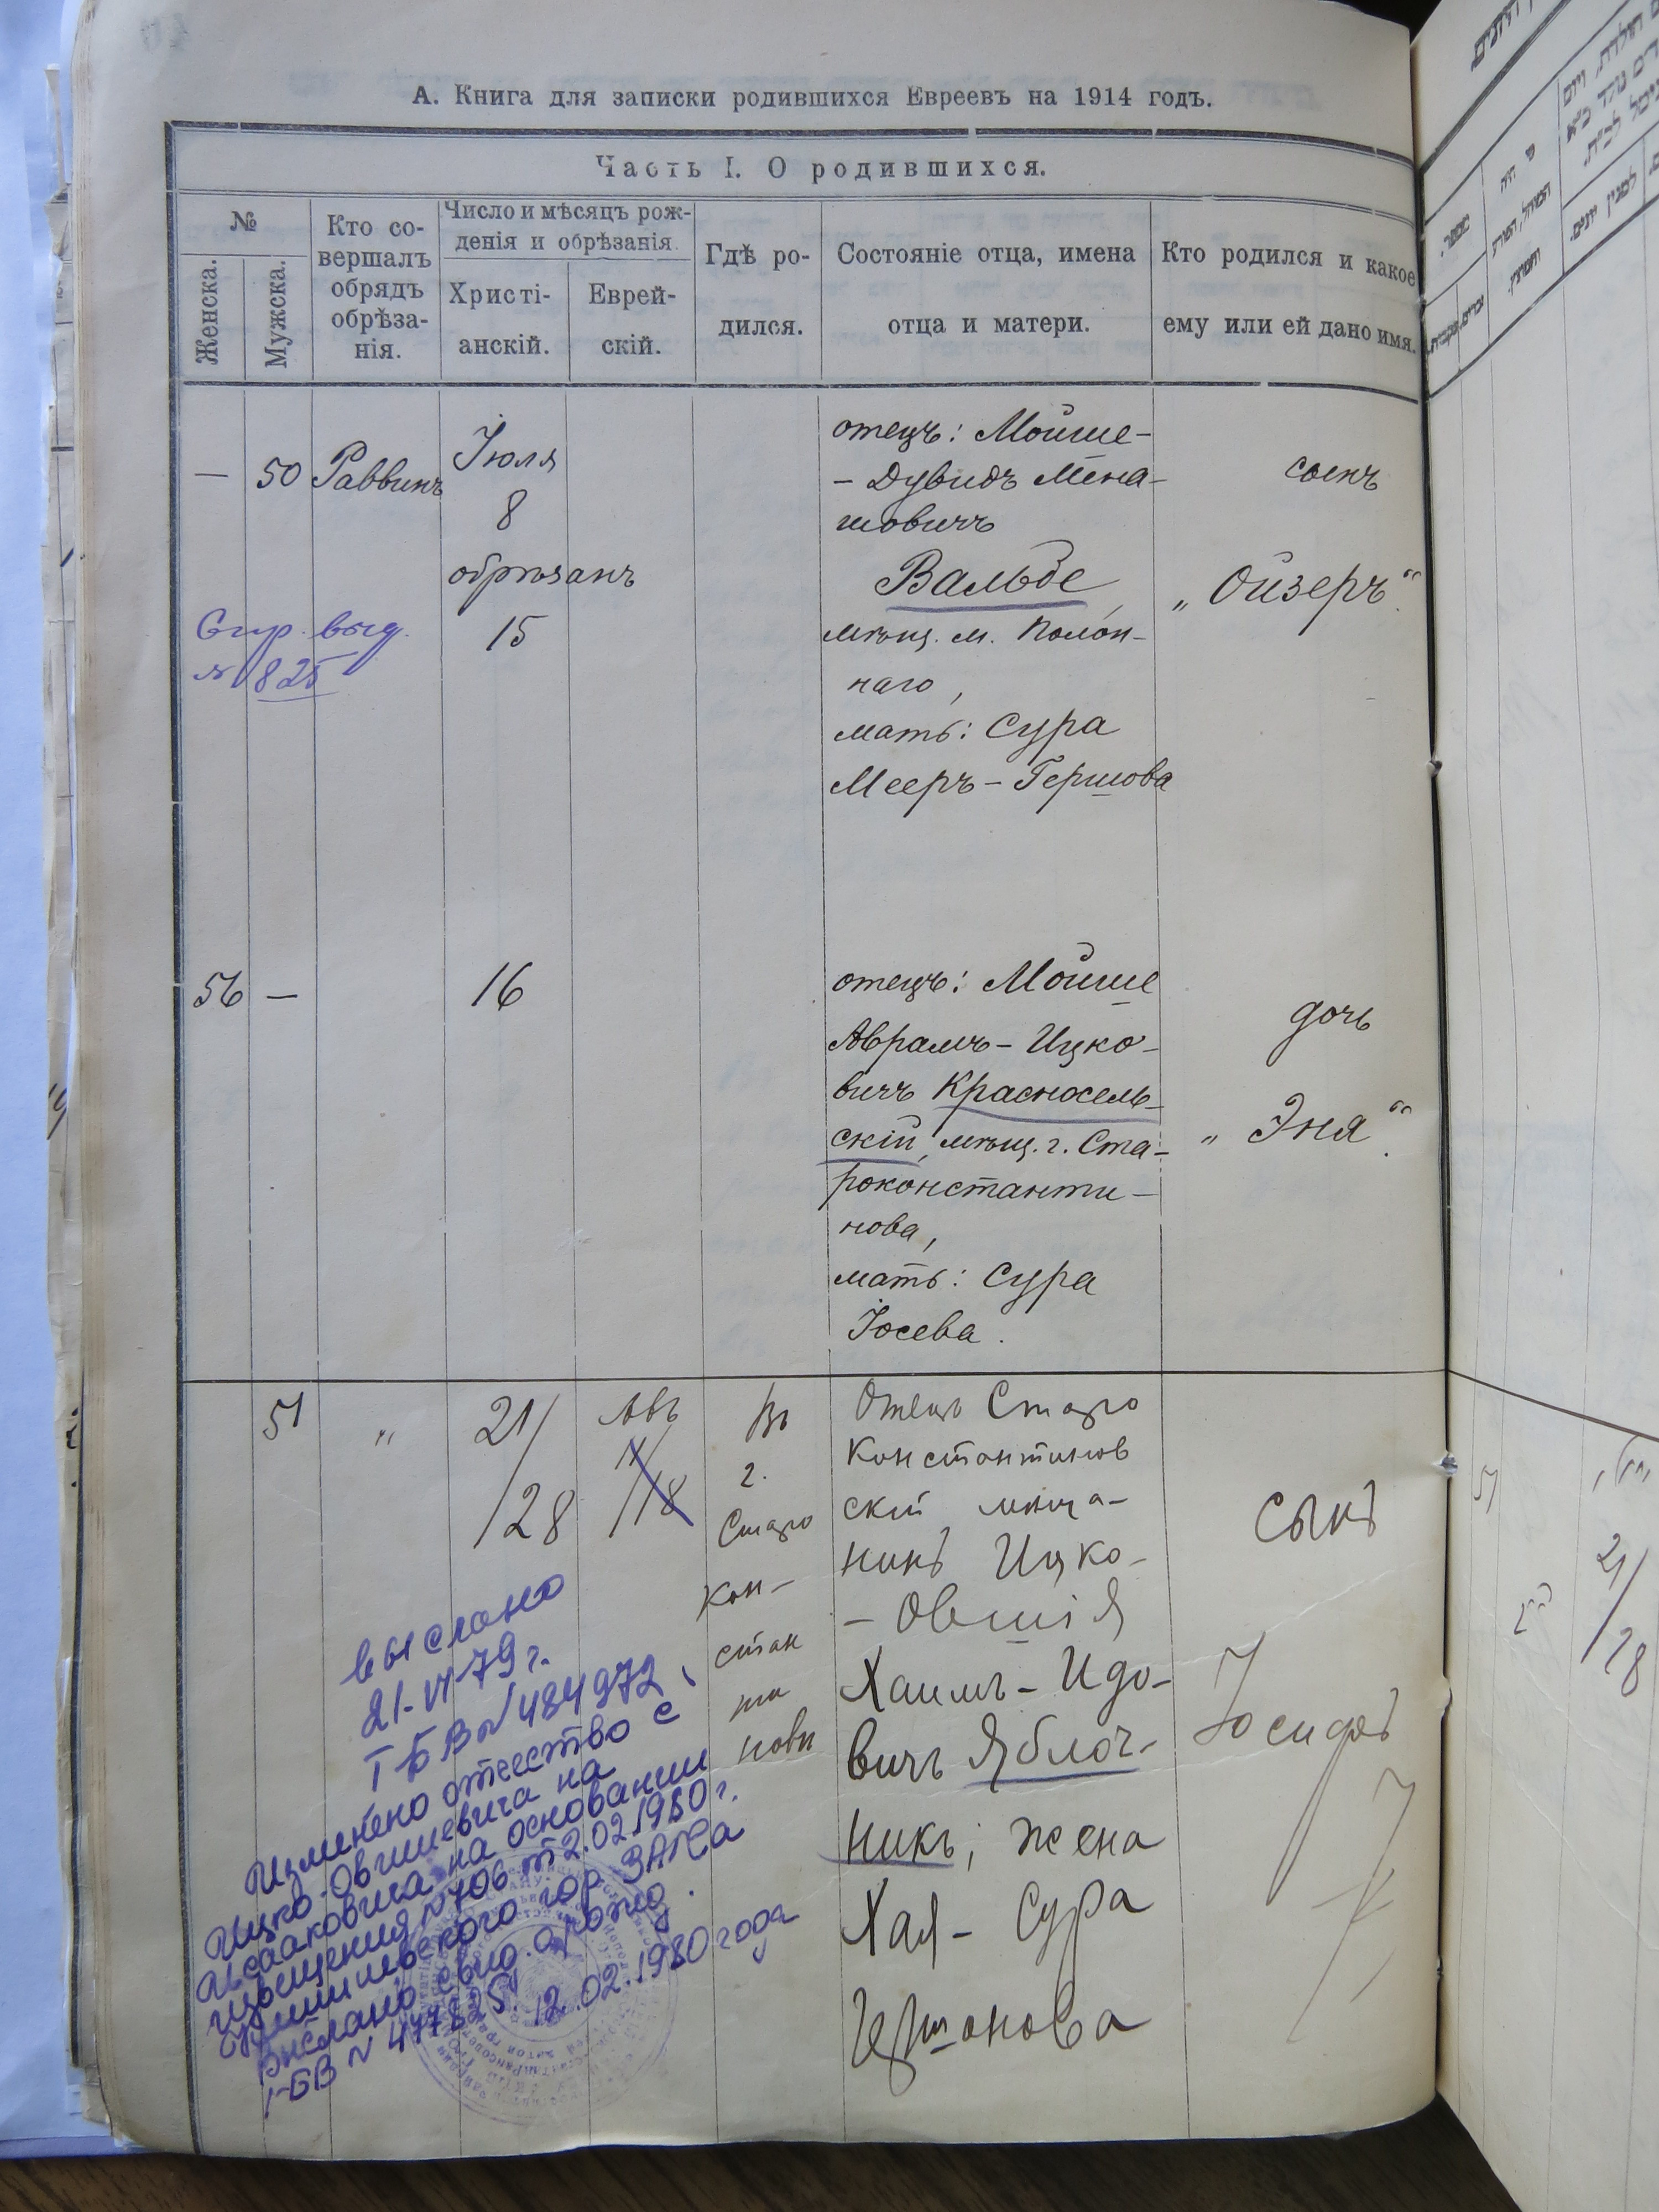 А. Книга для записки родившихся Евреевъ на 1914 годъ.
Часть I. О родившихся.
№
Женска.
Мужска.
Кто со-
вершалъ
обрядъ
обрѣза-
нія.
Число и мѣсяцъ рож-
денія и обрѣзанія.
Христі-
анскій.
Еврей-
скій.
Гдѣ ро-
дился.
Состояніе отца, имена
отца и матери.
Кто родился и какое
ему или ей дано имя.
— 50 Раввинъ
Іюля
8
обрѣзанъ
15
отецъ: Мойше-
- Дувидъ Мена-
шовичъ
Вальбе,
мѣщ. м. Полон-
наго,
мать: Сура
Мееръ-Гершова
сынъ
„Ойзеръ“.
Спр. выд.
№ 825
56 —
16
отецъ: Мойше
Аврамъ-Ицко-
вичъ Красносель-
скій, мѣщ. г. Ста-
роконстанти-
нова,
мать: Сура
Іосева.
дочь
„Эня“.
51
"
21/
/28
Авъ
11/
/18
Въ
г.
Старо
кон-
стан
ти
новѣ
Отецъ Старо
Константинов
скій мѣща-
нинъ Ицко-
- Овшія
Хаимъ-Идо-
вичъ Яблоч-
никъ; жена
Хая- Сура
сынъ
Іосифъ
выслано
21-VI-79 г.
I-БВ № 484972
Изменено отчество с
Ицко-Овшиевича на
Исааковича на основании
извещения № 706 от 2.02.1980 г.
гор. ЗАГСа
Выслано свид. о рожд.
I-БВ № 12.02.1980 года
51
21/
/28